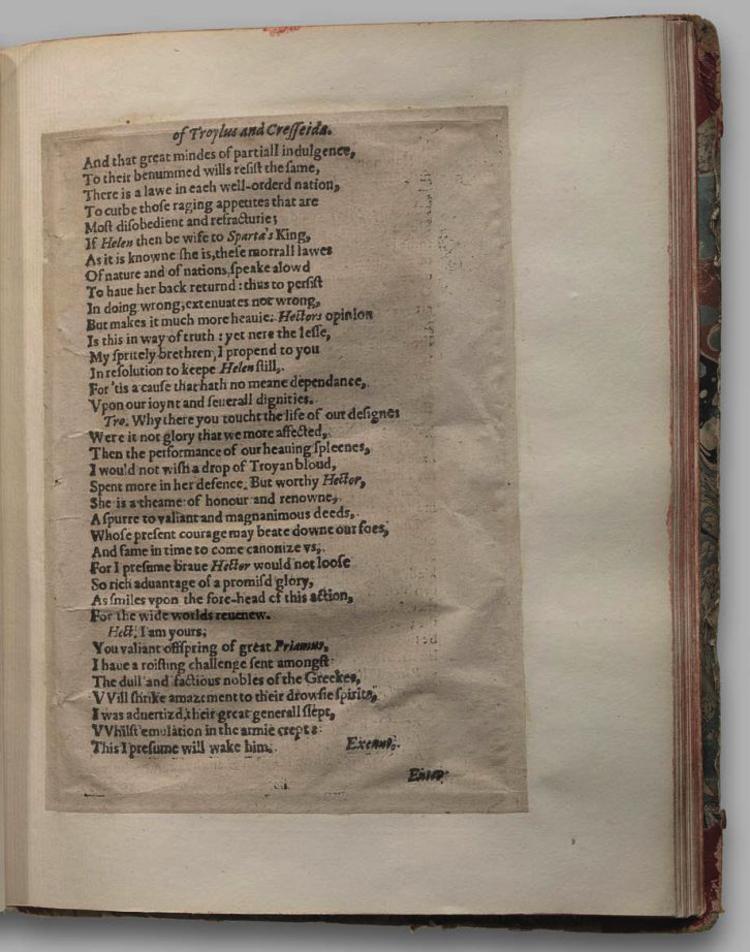 of Troylus and Cresseida.
And that great mindes of partiall indulgence,
To their benummed wills resist the same,
There is a lawe in each well-orderd nation,
To curbe those raging appetites that are
Most disobedient and refracturie;
If Helen then be wife to Sparta's King,
As it is knowne she is, these morrall lawes
Of nature and of nations, speake alowd
To haue her back returnd : thus to persist
In doing wrong, extenuates not wrong,
But makes it much more heauie. Hectors opinion
Is this in way of truth : yet nere the lesse,
My spritely brethren, I propend to you
In resolution to keepe Helen still,
For 'tis a cause that hath no meane dependance,
Vpon our ioynt and seuerall dignities.
Tro. Why there you toucht the life of our designes
Were it not glory that we more affected,
Then the performance of our heauing spleenes,
I would not wish a drop of Troyan bloud,
Spent more in her defence. But worthy Hector,
She is a theame of honour and renowne,
A spurre to valiant and magnanimous deeds,
Whose present courage may beate downe our foes,
And fame in time to come canonize vs,
For I presume braue Hector would not loose
So rich aduantage of a promisd glory,
As smiles vpon the fore-head of this action,
For the wide worlds reuenew.
Hect. I am yours,
You valiant offspring of great Priamus,
I haue a roisting challenge sent amongst
The dull and factious nobles of the Greekes,
VVill shrike amazement to their drowsie spirits,
I was aduertizd, their great generall slept,
VVhilst emulation in the armie crept :
This I presume will wake him. Exeunt.
Enter